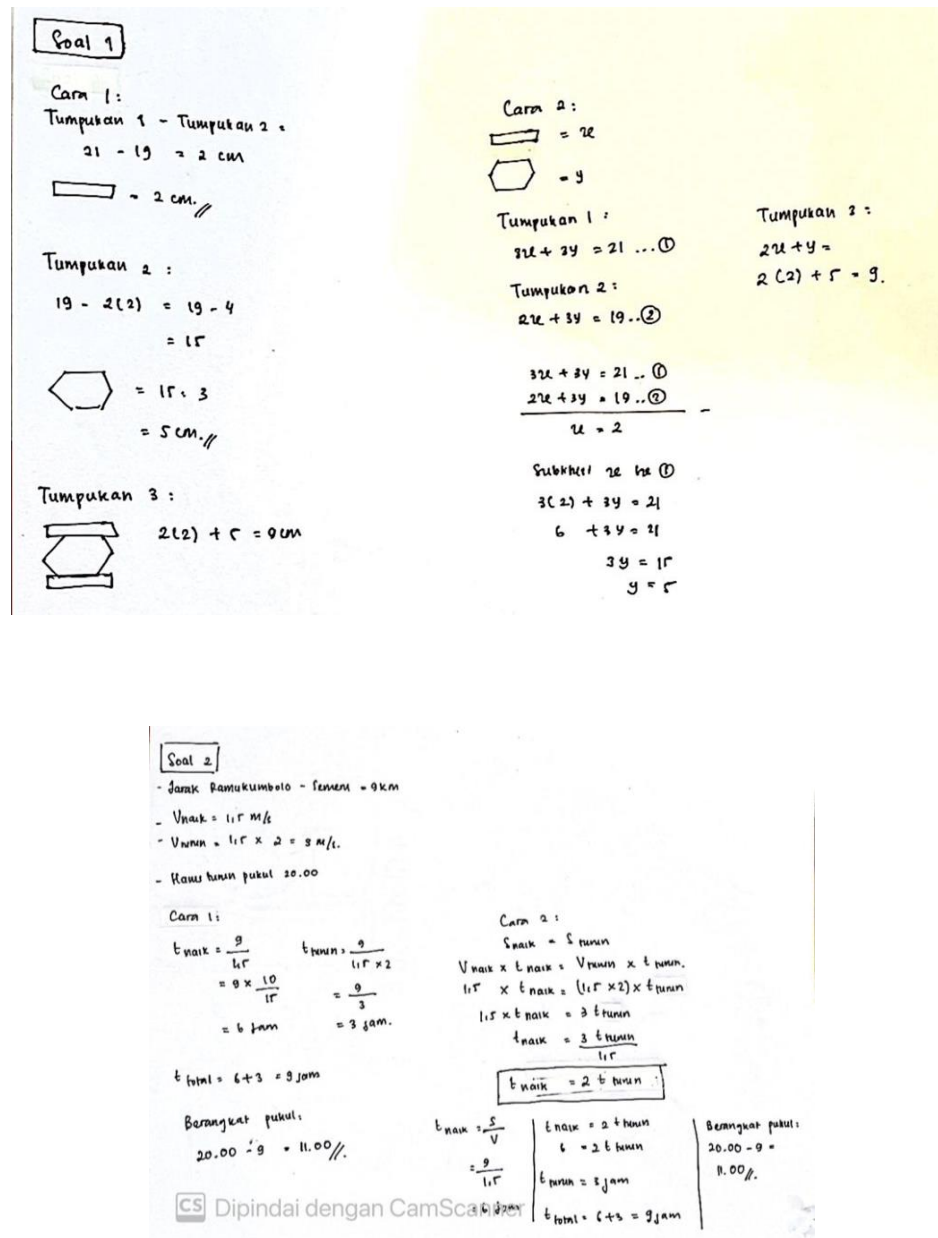 Soal 1
Cara 1:
Tumpukan 1 - Tumpukan 2 =
21 - 19 = 2 cm
= 2 cm.//
Tumpukan 2 :
19 - 2(2) = 19 - 4
= 15
= 15 : 3
= 5 cm.//
Tumpukan 3 :
2(2) + 5 = 9 cm
Cara 2 :
= x
= y
Tumpukan 1 :
3x + 3y = 21 ... ①
Tumpukan 2 :
2x + 3y = 19 .. ②
3x + 3y = 21 .. ①
2x + 3y = 19 .. ②
-
x = 2
x ke ①
3(2) + 3y = 21
6 + 3y = 21
3y = 15
y = 5
Tumpukan 3 :
2x + y =
2 (2) + 5 = 9.
Soal 2
- Jarak Ramukumbolo - Semeru = 9 km
- Vnaik = 1,5 m/s
- Vturun = 1,5 x 2 = 3 m/s.
- Harus turun pukul 20.00
Cara 1:
t naik = 9/1,5
= 9 x 10/15
= 6 jam
t turun = 9/1,5 x 2
= 9/3
= 3 jam.
t total = 6+3 = 9 jam
Berangkat pukul:
20.00 - 9 = 11.00//.
Cara 2 :
S naik = S turun
V naik x t naik = V turun x t turun.
1,5 x t naik = (1,5 x 2) x t turun
1,5 x t naik = 3 t turun
t naik = 3 t turun/1,5
t naik = 2 t turun
t naik = S/V
= 9/1,5
= 6 jam
t naik = 2 t turun
6 = 2 t turun
t turun = 3 jam
t total = 6+3 = 9 jam
Berangkat pukul:
20.00 - 9 =
11.00//.
CS Dipindai dengan CamScanner